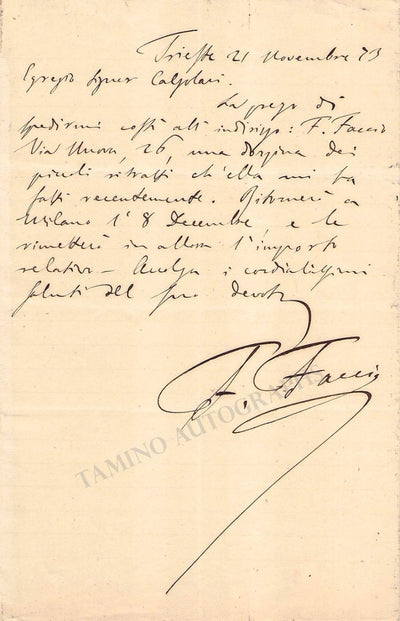 Trieste 21 Novembre 73
Egregio Signor Calzolari.
La prego di
spedirmi costì all'indirizzo: F. Faccio
Via Nuova, 26, una dozzina dei
piccoli ritratti ch'ella mi ha
fatti recentemente. Ritornerò a
Milano l'8 Decembre, e le
rimetterò in allora l'importo
relativo – Accolga i cordialissimi
saluti del suo devoto
F. Faccio
TAMINO AUTOGRAPHS